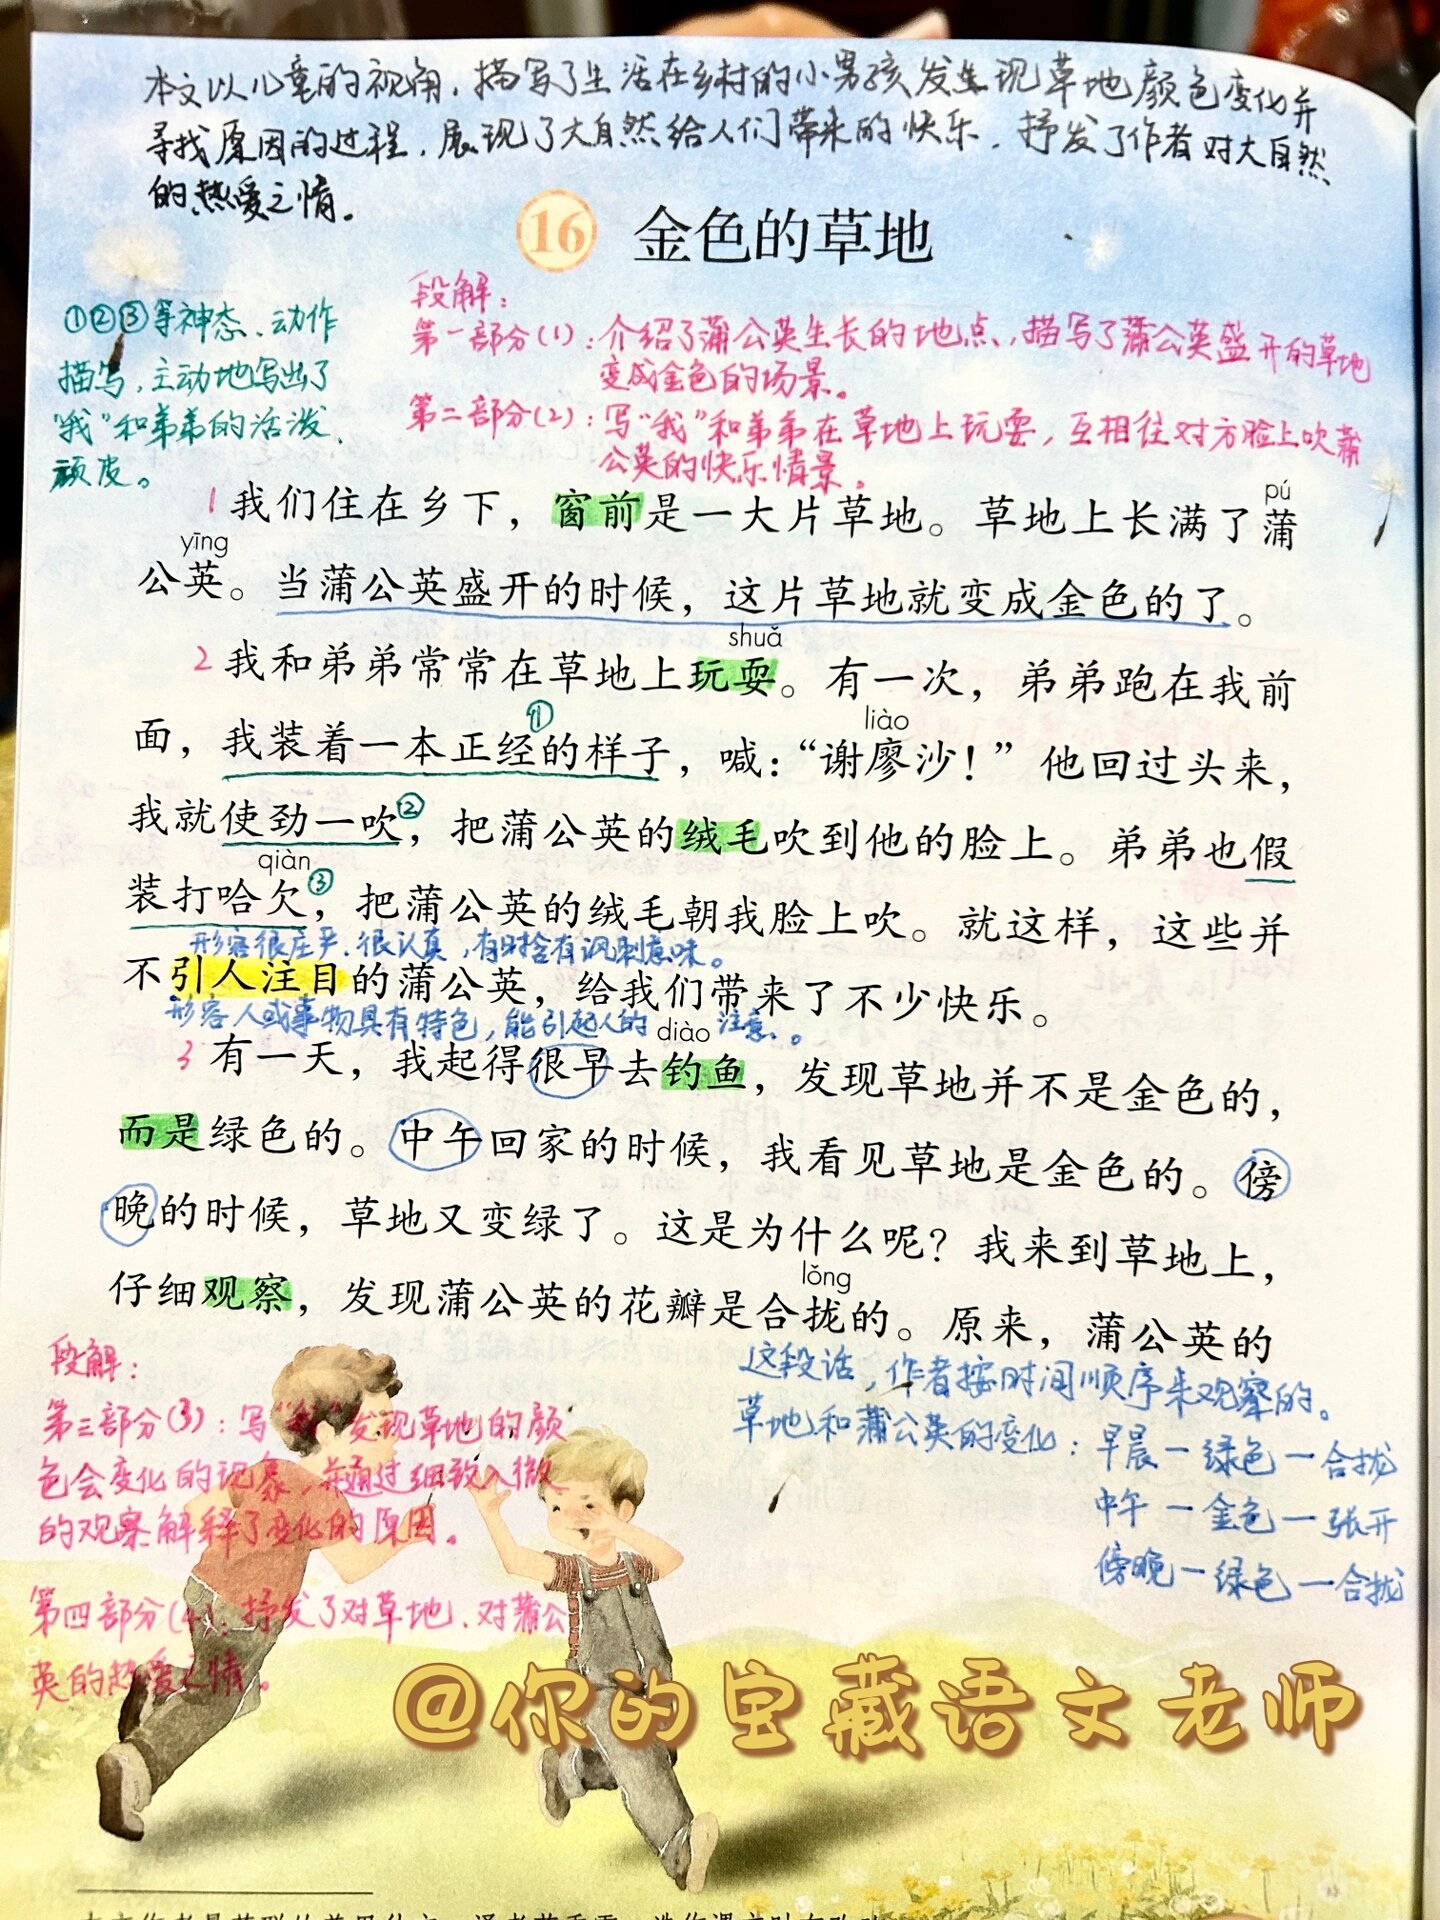 本文以儿童的视角，描写了生活在乡村的小男孩发现草地颜色变化并
寻找原因的过程，展现了大自然给人们带来的快乐，抒发了作者对大自然
的热爱之情。
16 金色的草地
①②③等神态、动作
描写，主动地写出了
“我”和弟弟的活泼、
顽皮。
段解：
第一部分(1)：介绍了蒲公英生长的地点，描写了蒲公英盛开的草地
变成金色的场景。
第二部分(2)：写“我”和弟弟在草地上玩耍，互相往对方脸上吹蒲
公英的快乐情景。
pú
1 我们住在乡下，窗前是一大片草地。草地上长满了蒲
yīng
公英。当蒲公英盛开的时候，这片草地就变成金色的了。
shuǎ
2 我和弟弟常常在草地上玩耍。有一次，弟弟跑在我前
① liào
面，我装着一本正经的样子，喊：“谢廖沙！”他回过头来，
我就使劲一吹②，把蒲公英的绒毛吹到他的脸上。弟弟也假
qiàn
装打哈欠③，把蒲公英的绒毛朝我脸上吹。就这样，这些并
形容很庄严、很认真，有时含有讽刺意味。
不引人注目的蒲公英，给我们带来了不少快乐。
形容人或事物具有特色，能引起人的注意。
diào
3 有一天，我起得很早去钓鱼，发现草地并不是金色的，
而是绿色的。中午回家的时候，我看见草地是金色的。傍
晚的时候，草地又变绿了。这是为什么呢？我来到草地上，
lǒng
仔细观察，发现蒲公英的花瓣是合拢的。原来，蒲公英的
这段话，作者按时间顺序来观察的。
草地和蒲公英的变化：早晨—绿色—合拢
中午—金色—张开
傍晚—绿色—合拢
段解：
第三部分(3)：写“我”发现草地的颜
色会变化的现象，并通过细致入微
的观察解释了变化的原因。
第四部分(4)：抒发了对草地、对蒲公
英的热爱之情。
@你的宝藏语文老师